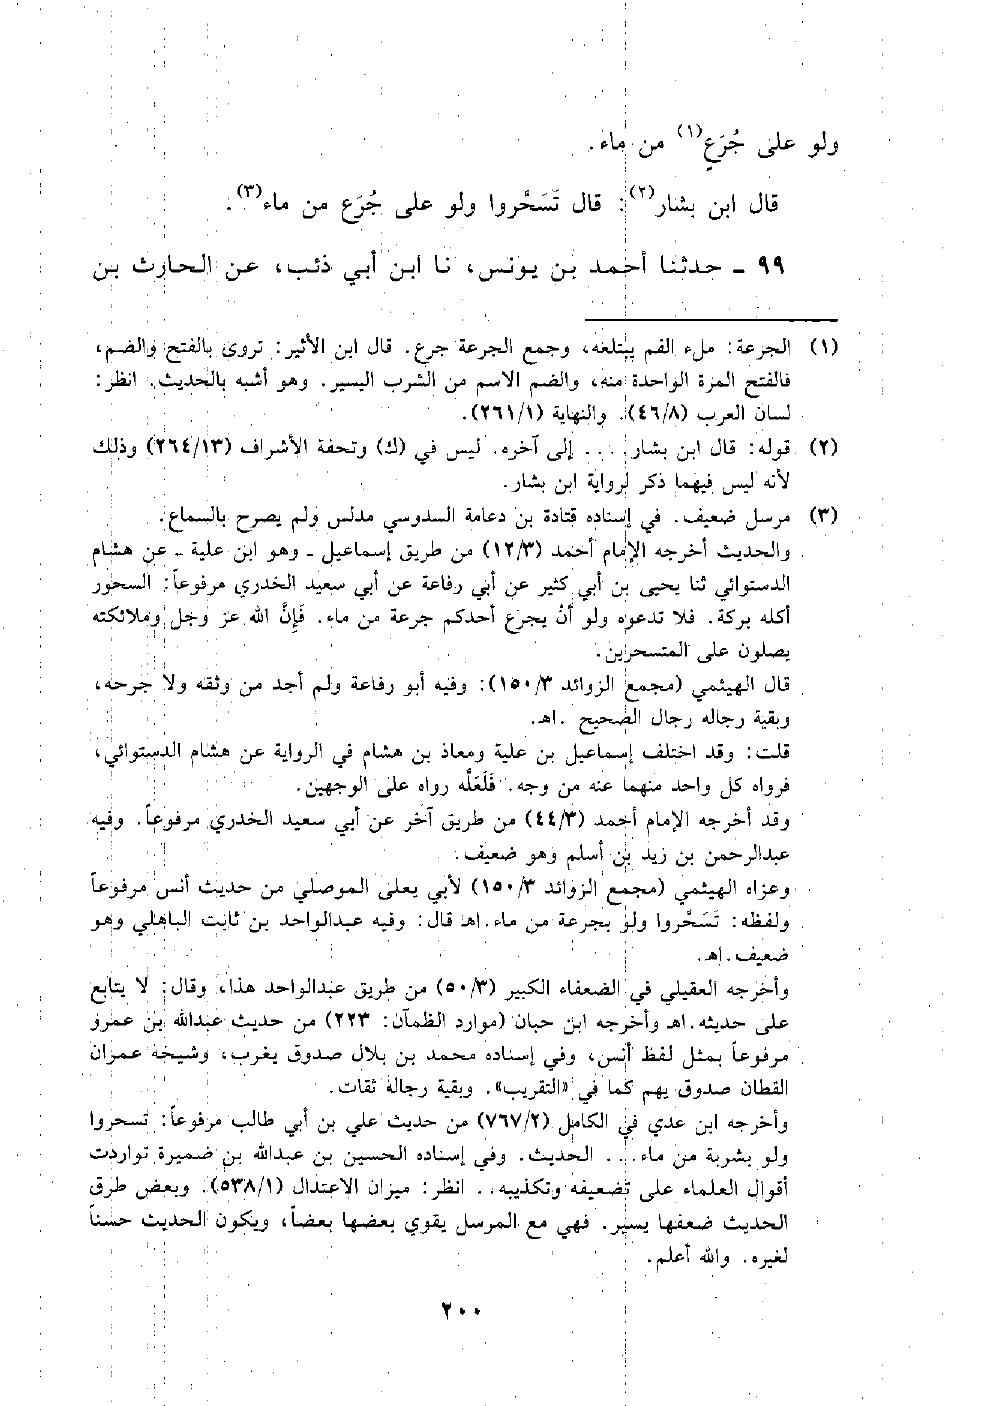 ولو على جُرَعٍ(١) من ماء.
قال ابن بشار(٢): قال تَسَحَّروا ولو على جُرَع من ماء(٣).
٩٩ ـ حدثنا أحمد بن يونس، نا ابن أبي ذئب، عن الحارث بن
(١) الجرعة: ملء الفم يبتلعه، وجمع الجرعة جرع. قال ابن الأثير: تروى بالفتح والضم،
فالفتح المرة الواحدة منه، والضم الاسم من الشرب اليسير. وهو أشبه بالحديث. انظر:
لسان العرب (٤٦/٨). والنهاية (٢٦١/١).
(٢) قوله: قال ابن بشار ... إلى آخره. ليس في (ك) وتحفة الأشراف (٢٦٤/١٣) وذلك
لأنه ليس فيهما ذكر لرواية ابن بشار.
(٣) مرسل ضعيف. في إسناده قتادة بن دعامة السدوسي مدلس ولم يصرح بالسماع.
والحديث أخرجه الإمام أحمد (١٢/٣) من طريق إسماعيل ـ وهو ابن علية ـ عن هشام
الدستوائي ثنا يحيى بن أبي كثير عن أبي رفاعة عن أبي سعيد الخدري مرفوعاً: السحور
أكله بركة. فلا تدعوه ولو أنْ يجرع أحدكم جرعة من ماء. فَإِنَّ الله عز وجل وملائكته
يصلون على المتسحرين.
قال الهيثمي (مجمع الزوائد ١٥٠/٣): وفيه أبو رفاعة ولم أجد من وثقه ولا جرحه،
وبقية رجاله رجال الصحيح .اهـ.
قلت: وقد اختلف إسماعيل بن علية ومعاذ بن هشام في الرواية عن هشام الدستوائي،
فرواه كل واحد منهما عنه من وجه. فَلَعَلَّه رواه على الوجهين.
وقد أخرجه الإمام أحمد (٤٤/٣) من طريق آخر عن أبي سعيد الخدري مرفوعاً. وفيه
عبدالرحمن بن زيد بن أسلم وهو ضعيف.
وعزاه الهيثمي (مجمع الزوائد ١٥٠/٣) لأبي يعلى الموصلي من حديث أنس مرفوعاً
ولفظه: تَسَحَّروا ولو بجرعة من ماء.اهـ قال: وفيه عبدالواحد بن ثابت الباهلي وهو
ضعيف.اهـ.
وأخرجه العقيلي في الضعفاء الكبير (٥٠/٣) من طريق عبدالواحد هذا، وقال: لا يتابع
على حديثه.اهـ وأخرجه ابن حبان (موارد الظمآن: ٢٢٣) من حديث عبدالله بن عمرو
مرفوعاً بمثل لفظ أنس، وفي إسناده محمد بن بلال صدوق يغرب، وشيخه عمران
القطان صدوق يهم كما في «التقريب». وبقية رجاله ثقات.
وأخرجه ابن عدي في الكامل (٧٦٧/٢) من حديث علي بن أبي طالب مرفوعاً: تسحروا
ولو بشربة من ماء... الحديث. وفي إسناده الحسين بن عبدالله بن ضميرة تواردت
أقوال العلماء على تضعيفه وتكذيبه.. انظر: ميزان الاعتدال (٥٣٨/١). وبعض طرق
الحديث ضعفها يسير. فهي مع المرسل يقوي بعضها بعضاً، ويكون الحديث حسناً
لغيره. والله أعلم.
٢٠٠